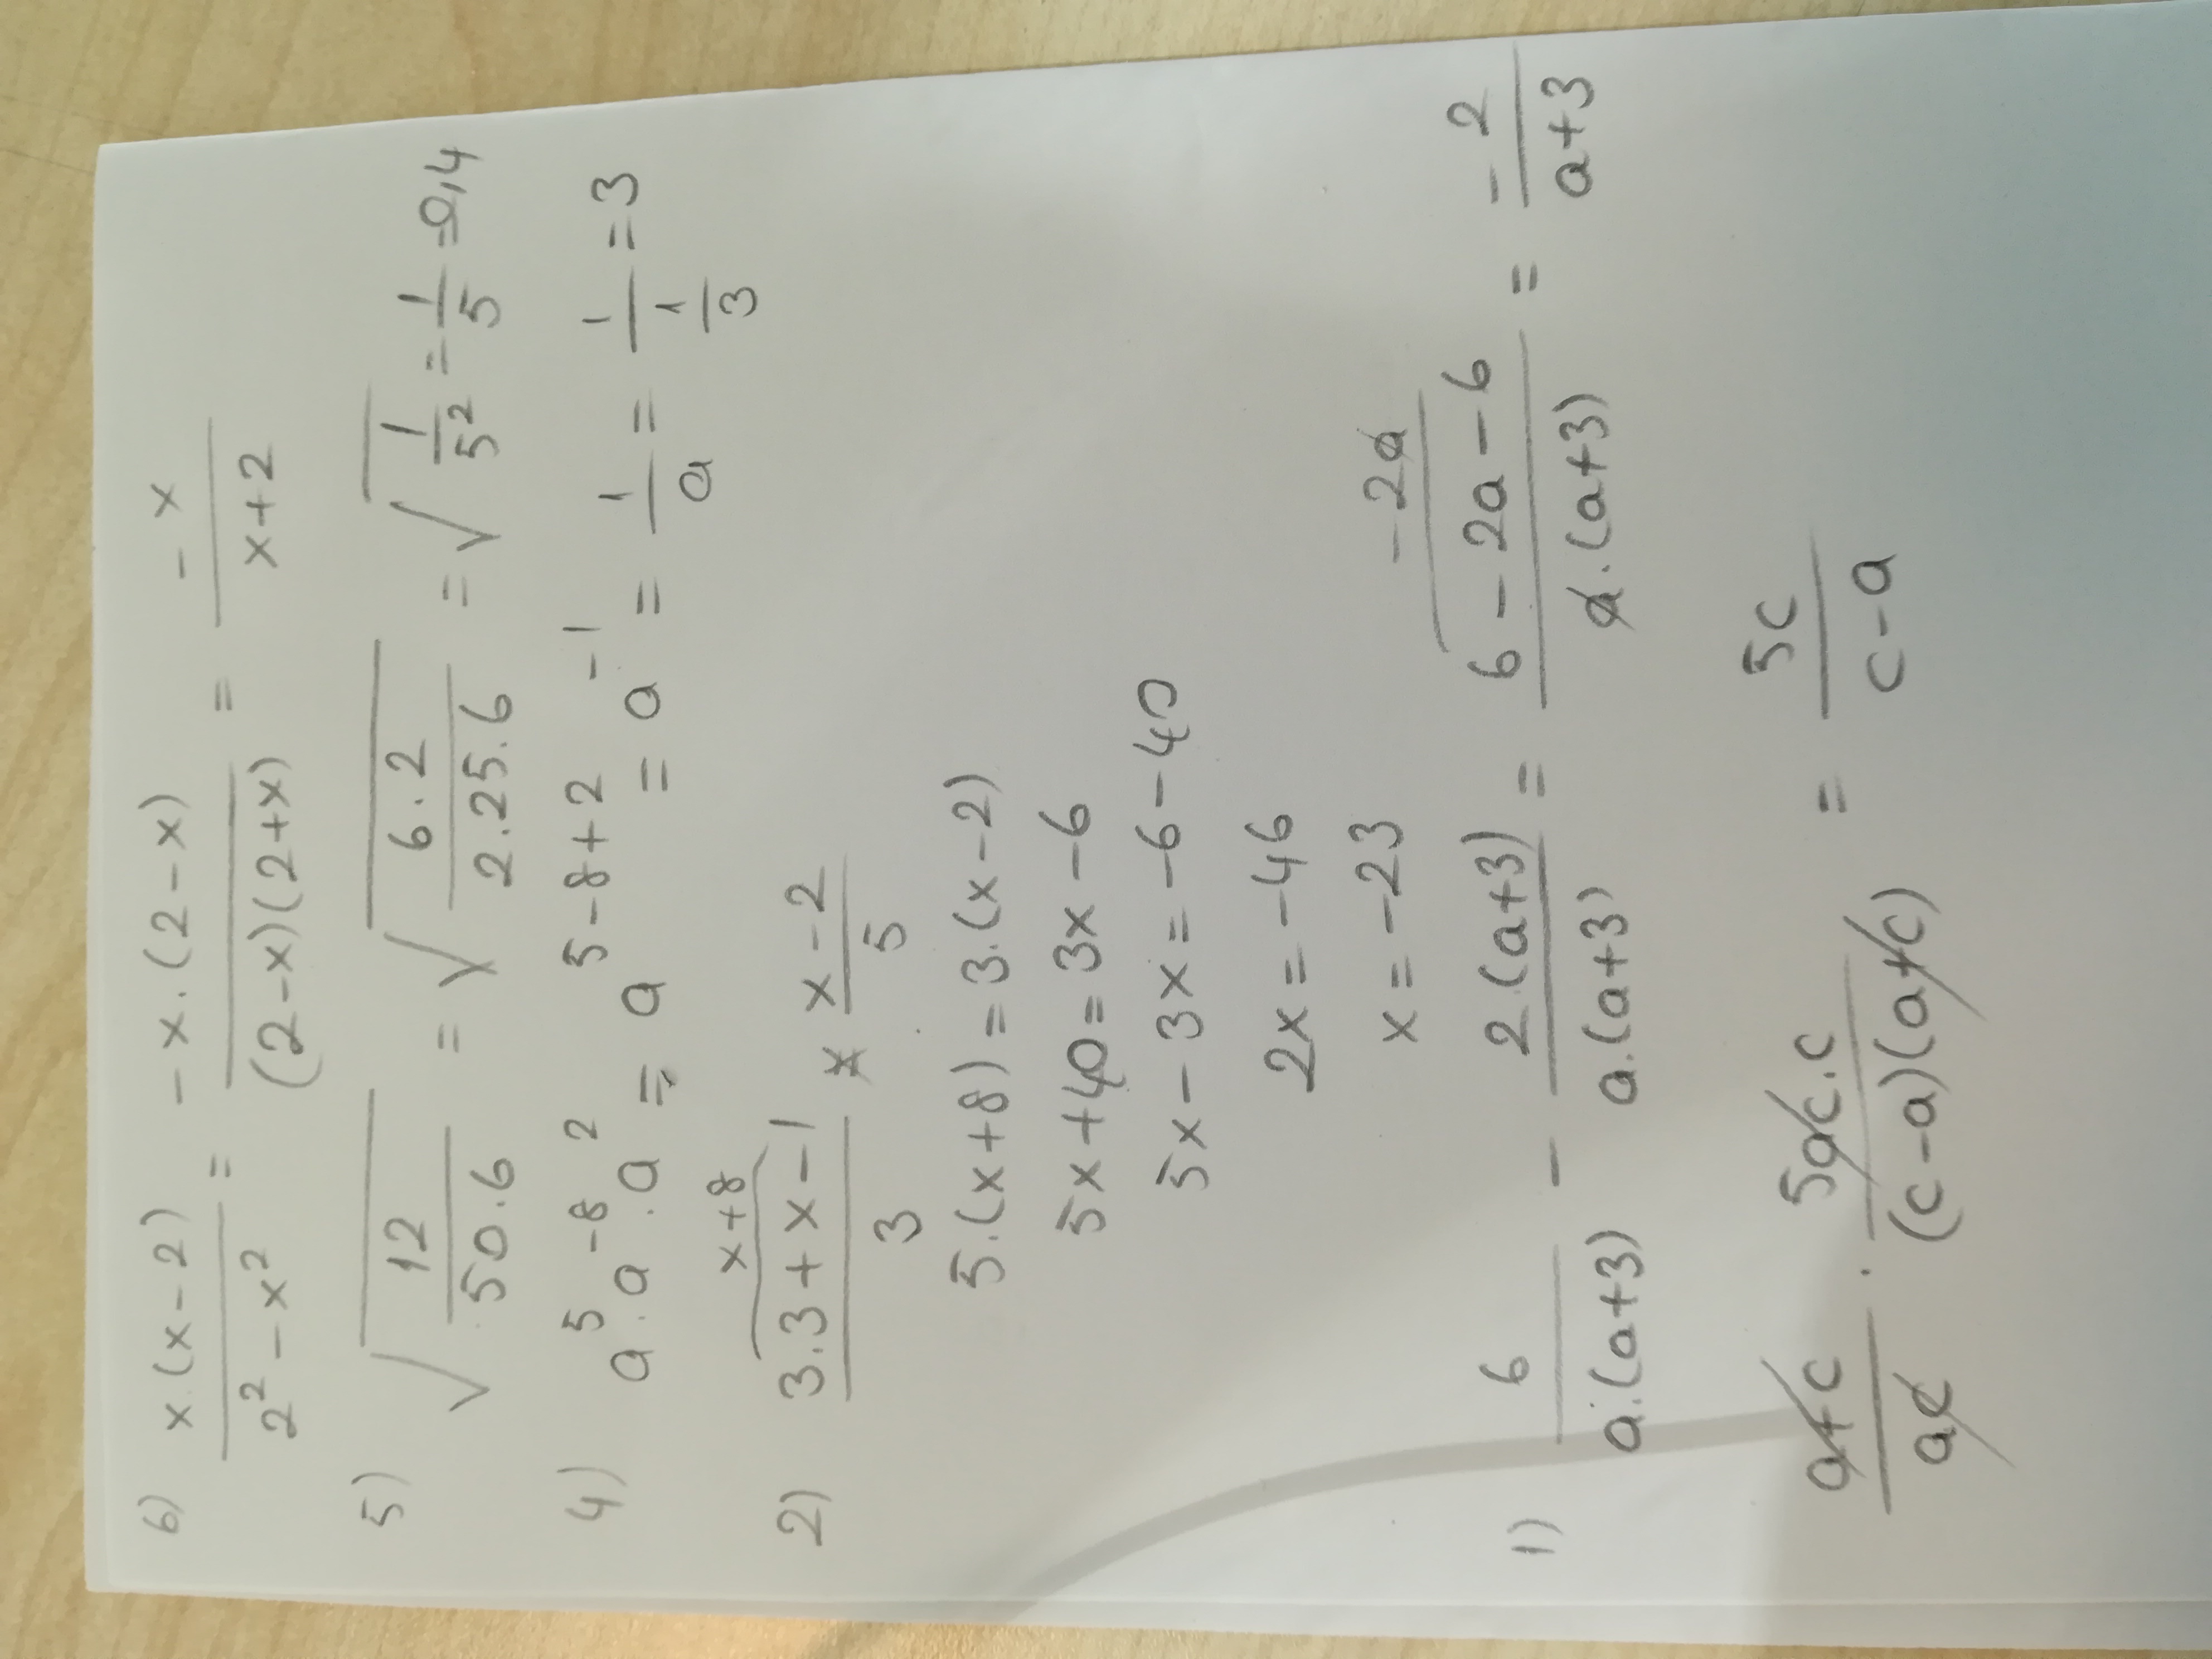 6) x.(x-2) / 2²-x² = -x.(2-x) / (2-x)(2+x) = -x / x+2
5) √(12 / 50.6) = √(6.2 / 2.25.6) = √(1 / 5²) = 1/5 = 0,4
4) a⁵.a⁻⁸.a² = a⁵⁻⁸⁺² = a⁻¹ = 1/a = 1 / (1/3) = 3
x+8
2) 3.3+x-1 / 3 x x-2 / 5
5.(x+8)=3.(x-2)
5x+40=3x-6
5x-3x=-6-40
2x=-46
x=-23
-2a
1) 6 / a.(a+3) - 2.(a+3) / a.(a+3) = 6-2a-6 / a.(a+3) = -2 / a+3
a+c / ac . 5ac.c / (c-a)(a+c) = 5c / c-a